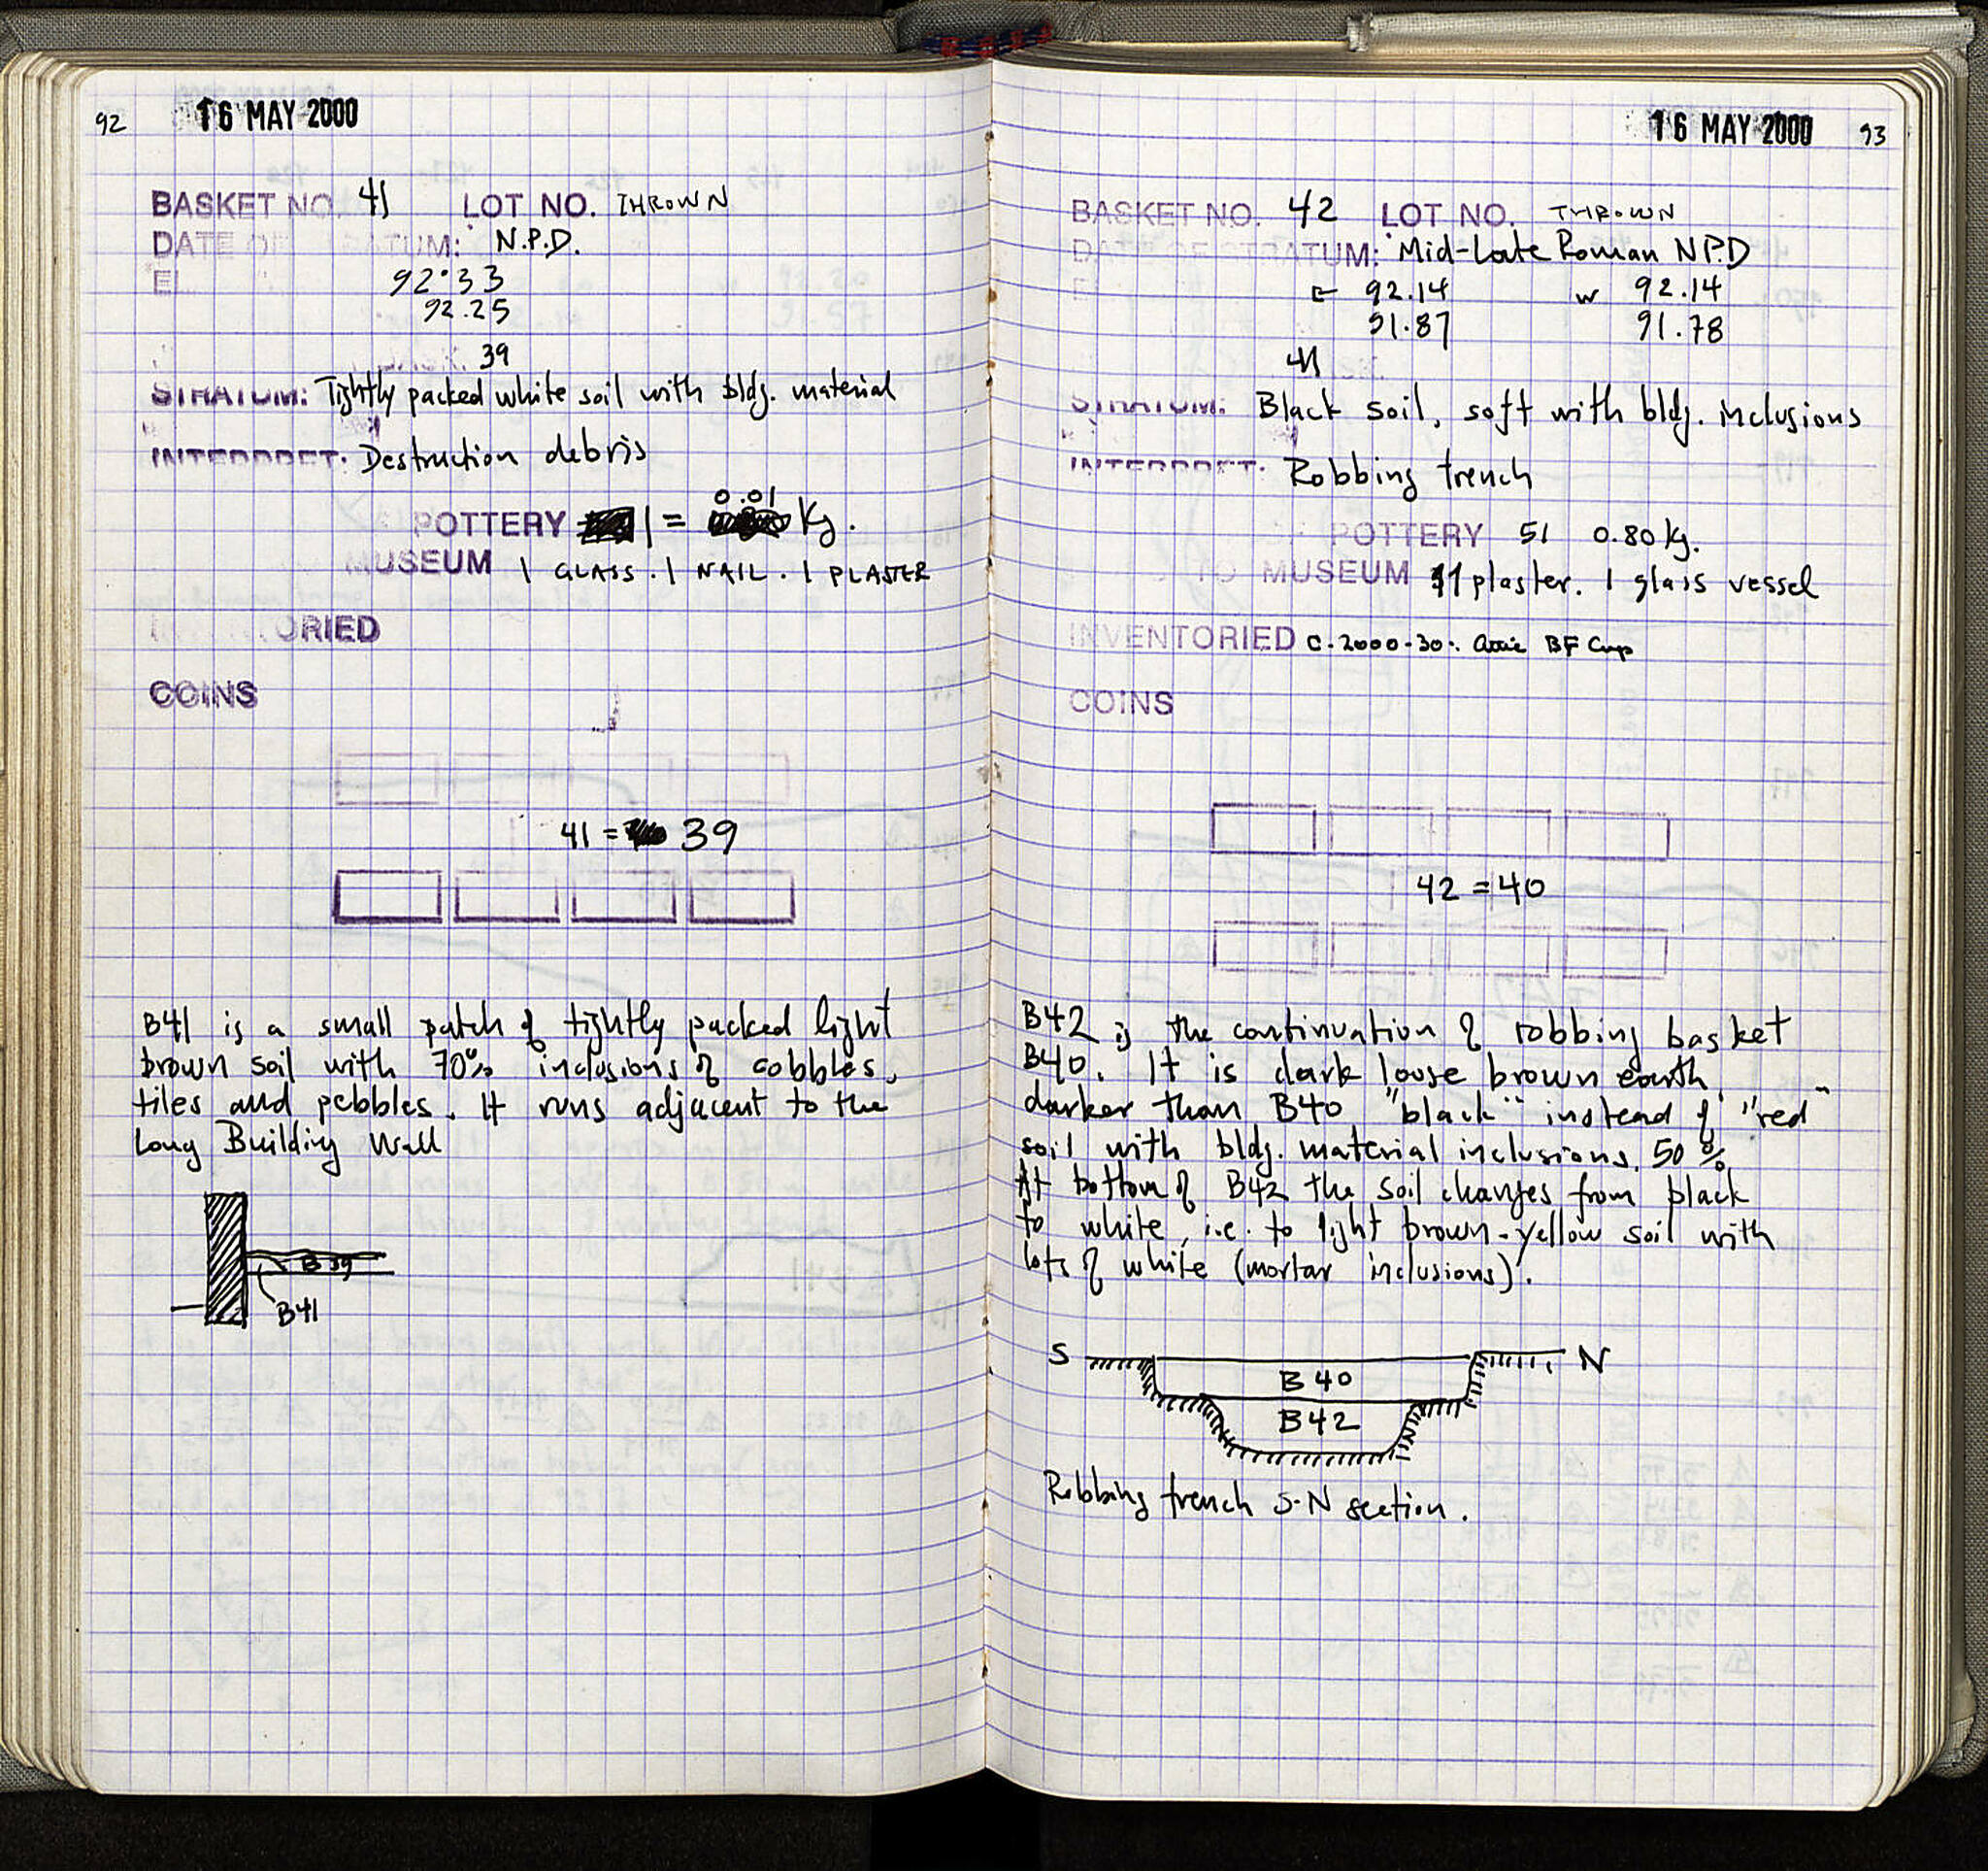 92
16 MAY 2000
BASKET NO. 41 LOT NO. THROWN
DATE OF STRATUM: N.P.D.
EL
92.33
92.25
39
STRATUM: Tightly packed white soil with bldg. material
INTERPRET: Destruction debris
0.01
POTTERY 1 = Kg.
MUSEUM 1 GLASS. 1 NAIL. 1 PLASTER
ORIED
COINS
41 = 39
B41 is a small patch of tightly packed light
brown soil with 70% inclusions of cobbles,
tiles and pebbles. It runs adjacent to the
Long Building Wall
B 39
B41
16 MAY 2000
93
BASKET NO. 42 LOT NO. THROWN
DATE OF STRATUM: Mid-Late Roman NPD
E 92.14 W 92.14
91.87 91.78
41
STRATUM: Black soil, soft with bldg. inclusions
INTERPRET: Robbing trench
POTTERY 51 0.80 kg.
TO MUSEUM plaster. 1 glass vessel
INVENTORIED C-2000-30: Attic BF Cup
COINS
42 = 40
B42 is the continuation of robbing basket
B40. It is dark loose brown earth,
darker than B40 "black" instead of "red"
soil with bldg. material inclusions. 50%
At bottom of B42 the soil changes from black
to white, i.e. to light brown-yellow soil with
lots of white (mortar inclusions).
S N
B 40
B42
Robbing trench S-N section.